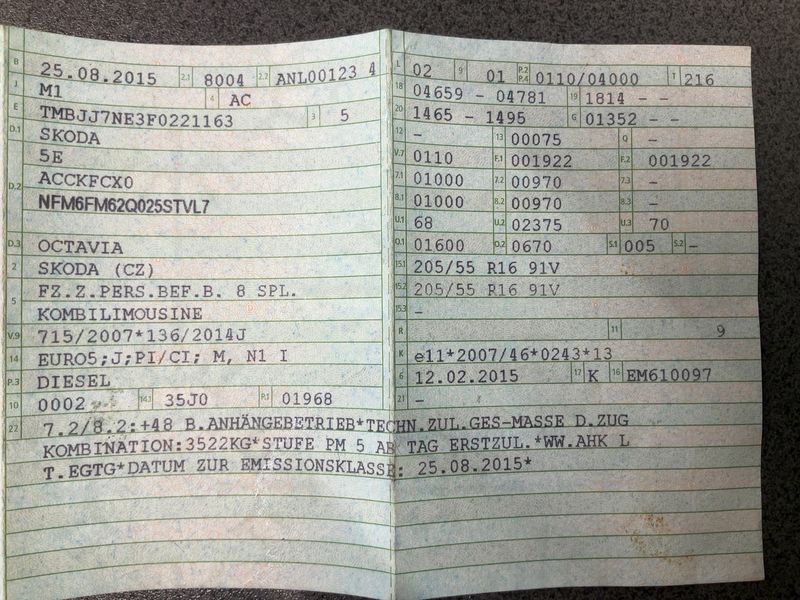 B 25.08.2015 2.1 8004 2.2 ANL00123 4
J M1 4 AC
E TMBJJ7NE3F0221163 3 5
D.1 SKODA
D.2 5E
ACCKFCX0
NFM6FM62Q025STVL7
D.3 OCTAVIA
2 SKODA (CZ)
5 FZ.Z.PERS.BEF.B. 8 SPL.
KOMBILIMOUSINE
V.9 715/2007*136/2014J
14 EURO5;J;PI/CI; M, N1 I
P.3 DIESEL
10 0002 14.1 35J0 P.1 01968
L 02 9 01 P.2 P.4 0110/04000 T 216
18 04659 - 04781 19 1814 - -
20 1465 - 1495 G 01352 - -
12 - 13 00075 Q -
V.7 0110 F.1 001922 F.2 001922
7.1 01000 7.2 00970 7.3 -
8.1 01000 8.2 00970 8.3 -
U.1 68 U.2 02375 U.3 70
O.1 01600 O.2 0670 S.1 005 S.2 -
15.1 205/55 R16 91V
15.2 205/55 R16 91V
15.3 -
R 11 9
K e11*2007/46*0243*13
6 12.02.2015 17 K 16 EM610097
21 -
22 7.2/8.2:+48 B.ANHÄNGEBETRIEB*TECHN.ZUL.GES-MASSE D.ZUG
KOMBINATION:3522KG*STUFE PM 5 AB TAG ERSTZUL.*WW.AHK L
T.EGTG*DATUM ZUR EMISSIONSKLASSE: 25.08.2015*